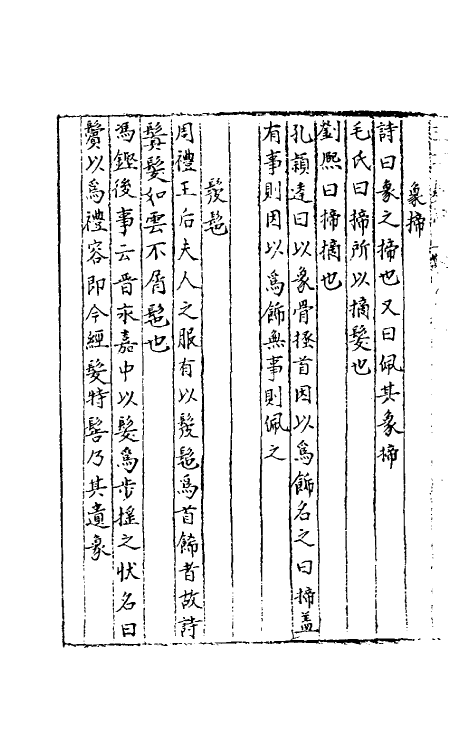 象掃
詩曰象之掃也又曰佩其象掃
毛氏曰掃所以摘髮也
劉熙曰掃摘也
孔穎達曰以象骨搔首因以為飾名之曰掃盖
有事則因以為飾無事則佩之
髲髢
周禮王后夫人之服有以髲髢為首飾者故詩
鬒髮如雲不屑髢也
馮鑑後事云晉永嘉中以髮為步摇之狀名曰
鬢以為禮容即今經髮特髻乃其遺象